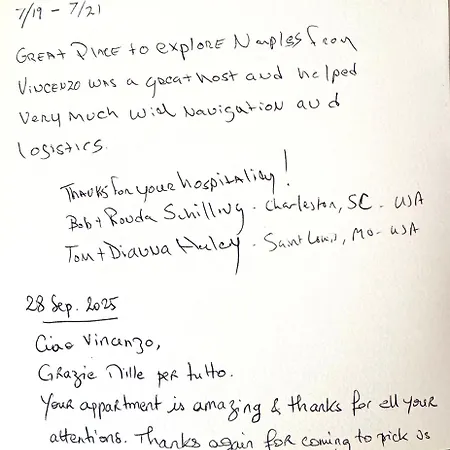 7/19 - 7/21
Great Place to explore Naples from
Vincenzo was a great host and helped
very much with navigation and
logistics.
Thanks for your hospitality!
Bob + Ronda Schilling - Charleston, SC - USA
Tom + Dianna - Saint Louis, MO - USA
28 Sep. 2025
Ciao Vincenzo,
Grazie Mille per tutto.
Your appartment is amazing & thanks for all your
attentions. Thanks again for coming to pick us